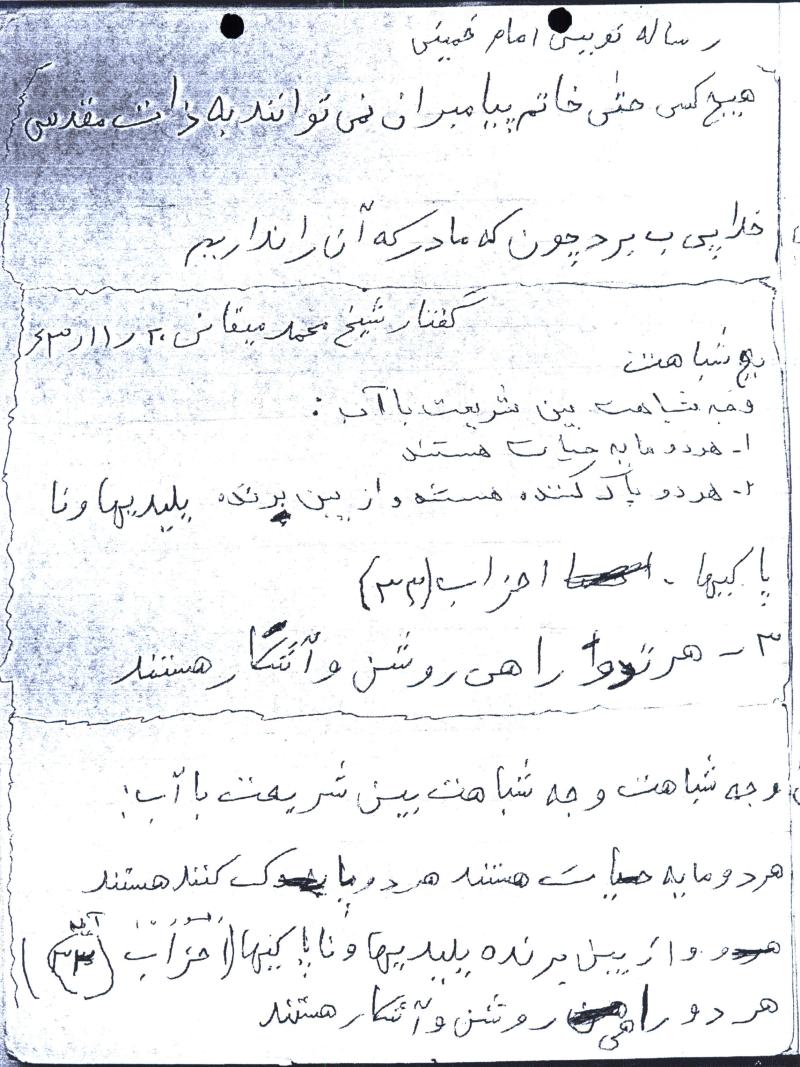 رساله نویسی امام خمینی
هیچ کسی حتی خاتم پیامبران نمی توانند به ذات مقدسی
خدا پی ب برد چون که ما درکه آن را نداریم
گفتار شیخ محمد میقانی ۲۰ ر ۱۱ ر ۶۳
شباهت
وجه شباهت بین شریعت با آب :
۱- هر دو مایه حیات هستند
۲- هر دو پاک کننده هستند و از بین برنده پلیدیها و نا
پاکیها - احزاب (۳۳)
۳- هر دو راهی روشن و آشکار هستند
وجه شباهت وجه شباهت بین شریعت با آب :
هر دو مایه حیات هستند هر دو پاک کنند هستند
و از بین برنده پلیدیها و ناپاکیها (احزاب آیه ۳۳)
هر دو راهی روشن و آشکار هستند